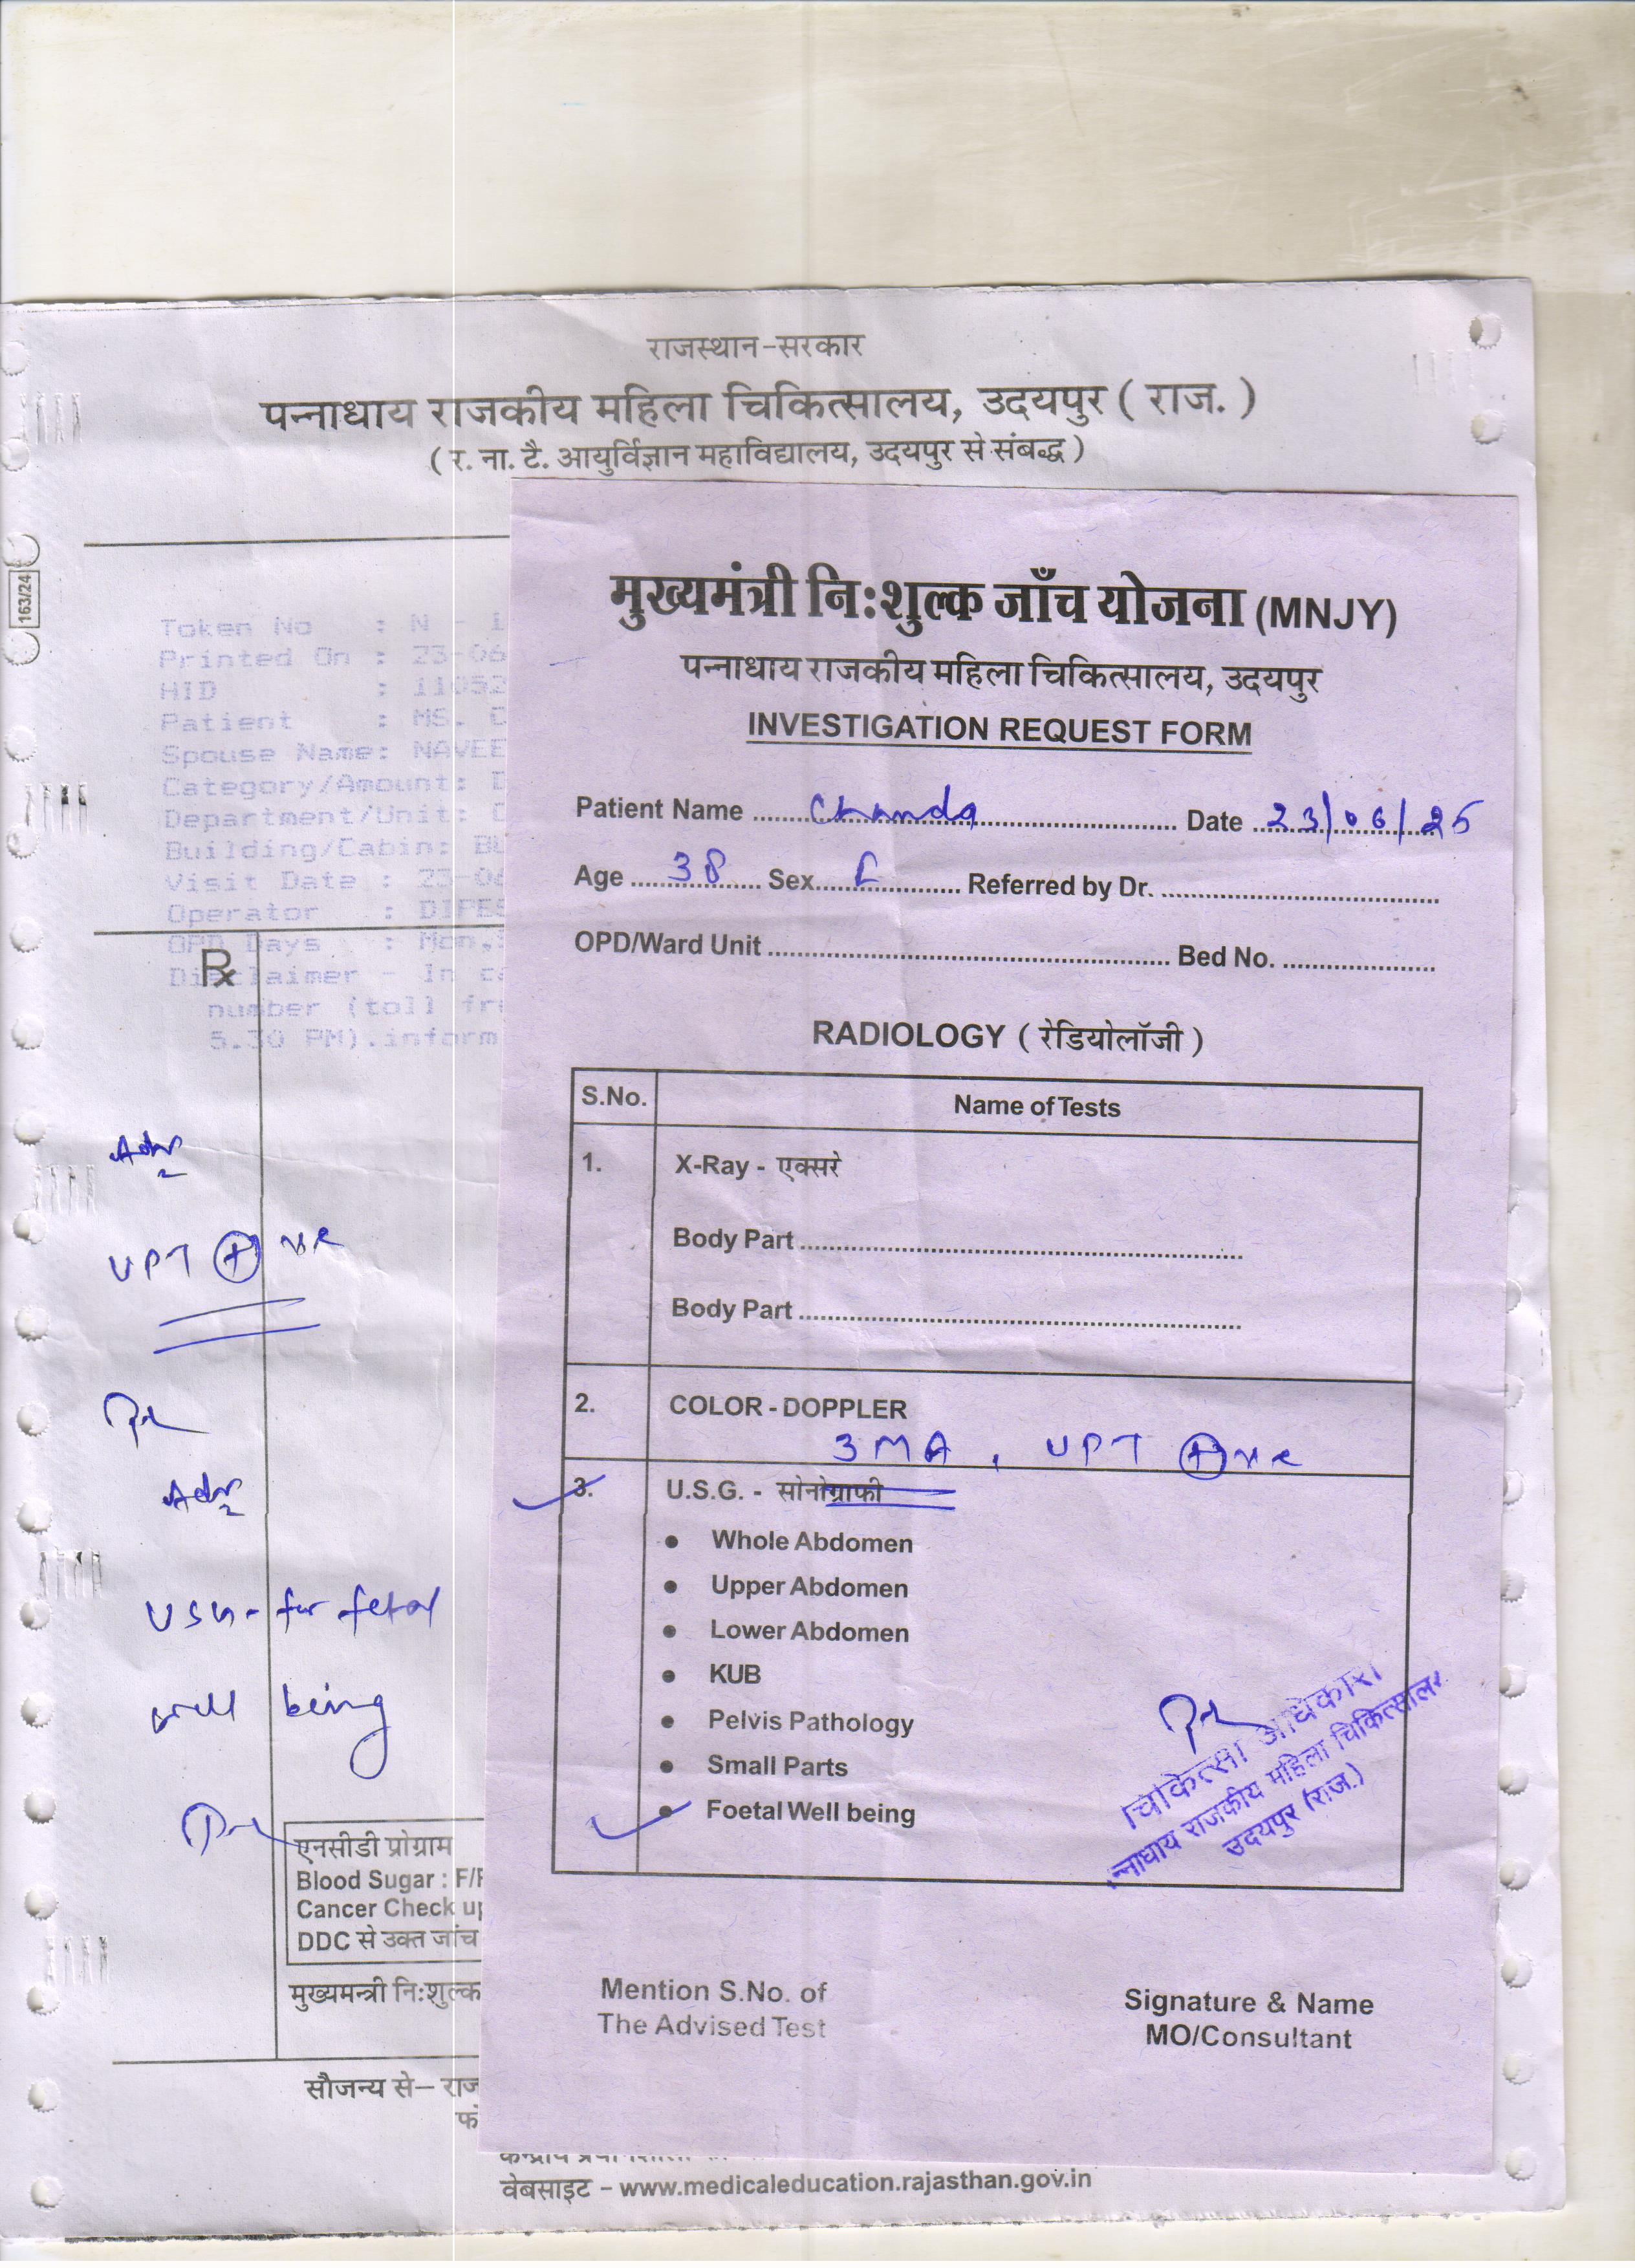 राजस्थान-सरकार
पन्नाधाय राजकीय महिला चिकित्सालय, उदयपुर ( राज. )
( र. ना. टै. आयुर्विज्ञान महाविद्यालय, उदयपुर से संबद्ध )
163/24
Token No : N -
Printed On : 23-06
HID : 11052
Patient : MS.
Spouse Name: NAVEE
Category/Amount:
Department/Unit:
Building/Cabin:
Visit Date : 23-06
Operator : DIPES
OPD Days : Mon,
Disclaimer - In
number (toll fr
5.30 PM).inform
Rx
Adv
UPT + ve
Adv
USG - for fetal
well being
एनसीडी प्रोग्राम
Blood Sugar : F/
Cancer Check up
DDC से उक्त जांच
मुख्यमन्त्री नि:शुल्क
सौजन्य से– राज
वेबसाइट – www.medicaleducation.rajasthan.gov.in
मुख्यमंत्री नि:शुल्क जाँच योजना (MNJY)
पन्नाधाय राजकीय महिला चिकित्सालय, उदयपुर
INVESTIGATION REQUEST FORM
Patient Name Chanda Date 23/06/25
Age 38 Sex F Referred by Dr.
OPD/Ward Unit Bed No.
RADIOLOGY ( रेडियोलॉजी )
S.No. Name of Tests
1. X-Ray - एक्सरे
Body Part
Body Part
2. COLOR - DOPPLER
3 MA , UPT + ve
3. U.S.G. - सोनोग्राफी
• Whole Abdomen
• Upper Abdomen
• Lower Abdomen
• KUB
• Pelvis Pathology
• Small Parts
• Foetal Well being
चिकित्सा अधिकारी
न्नाधाय राजकीय महिला चिकित्सालय
उदयपुर (राज.)
Mention S.No. of
The Advised Test
Signature & Name
MO/Consultant